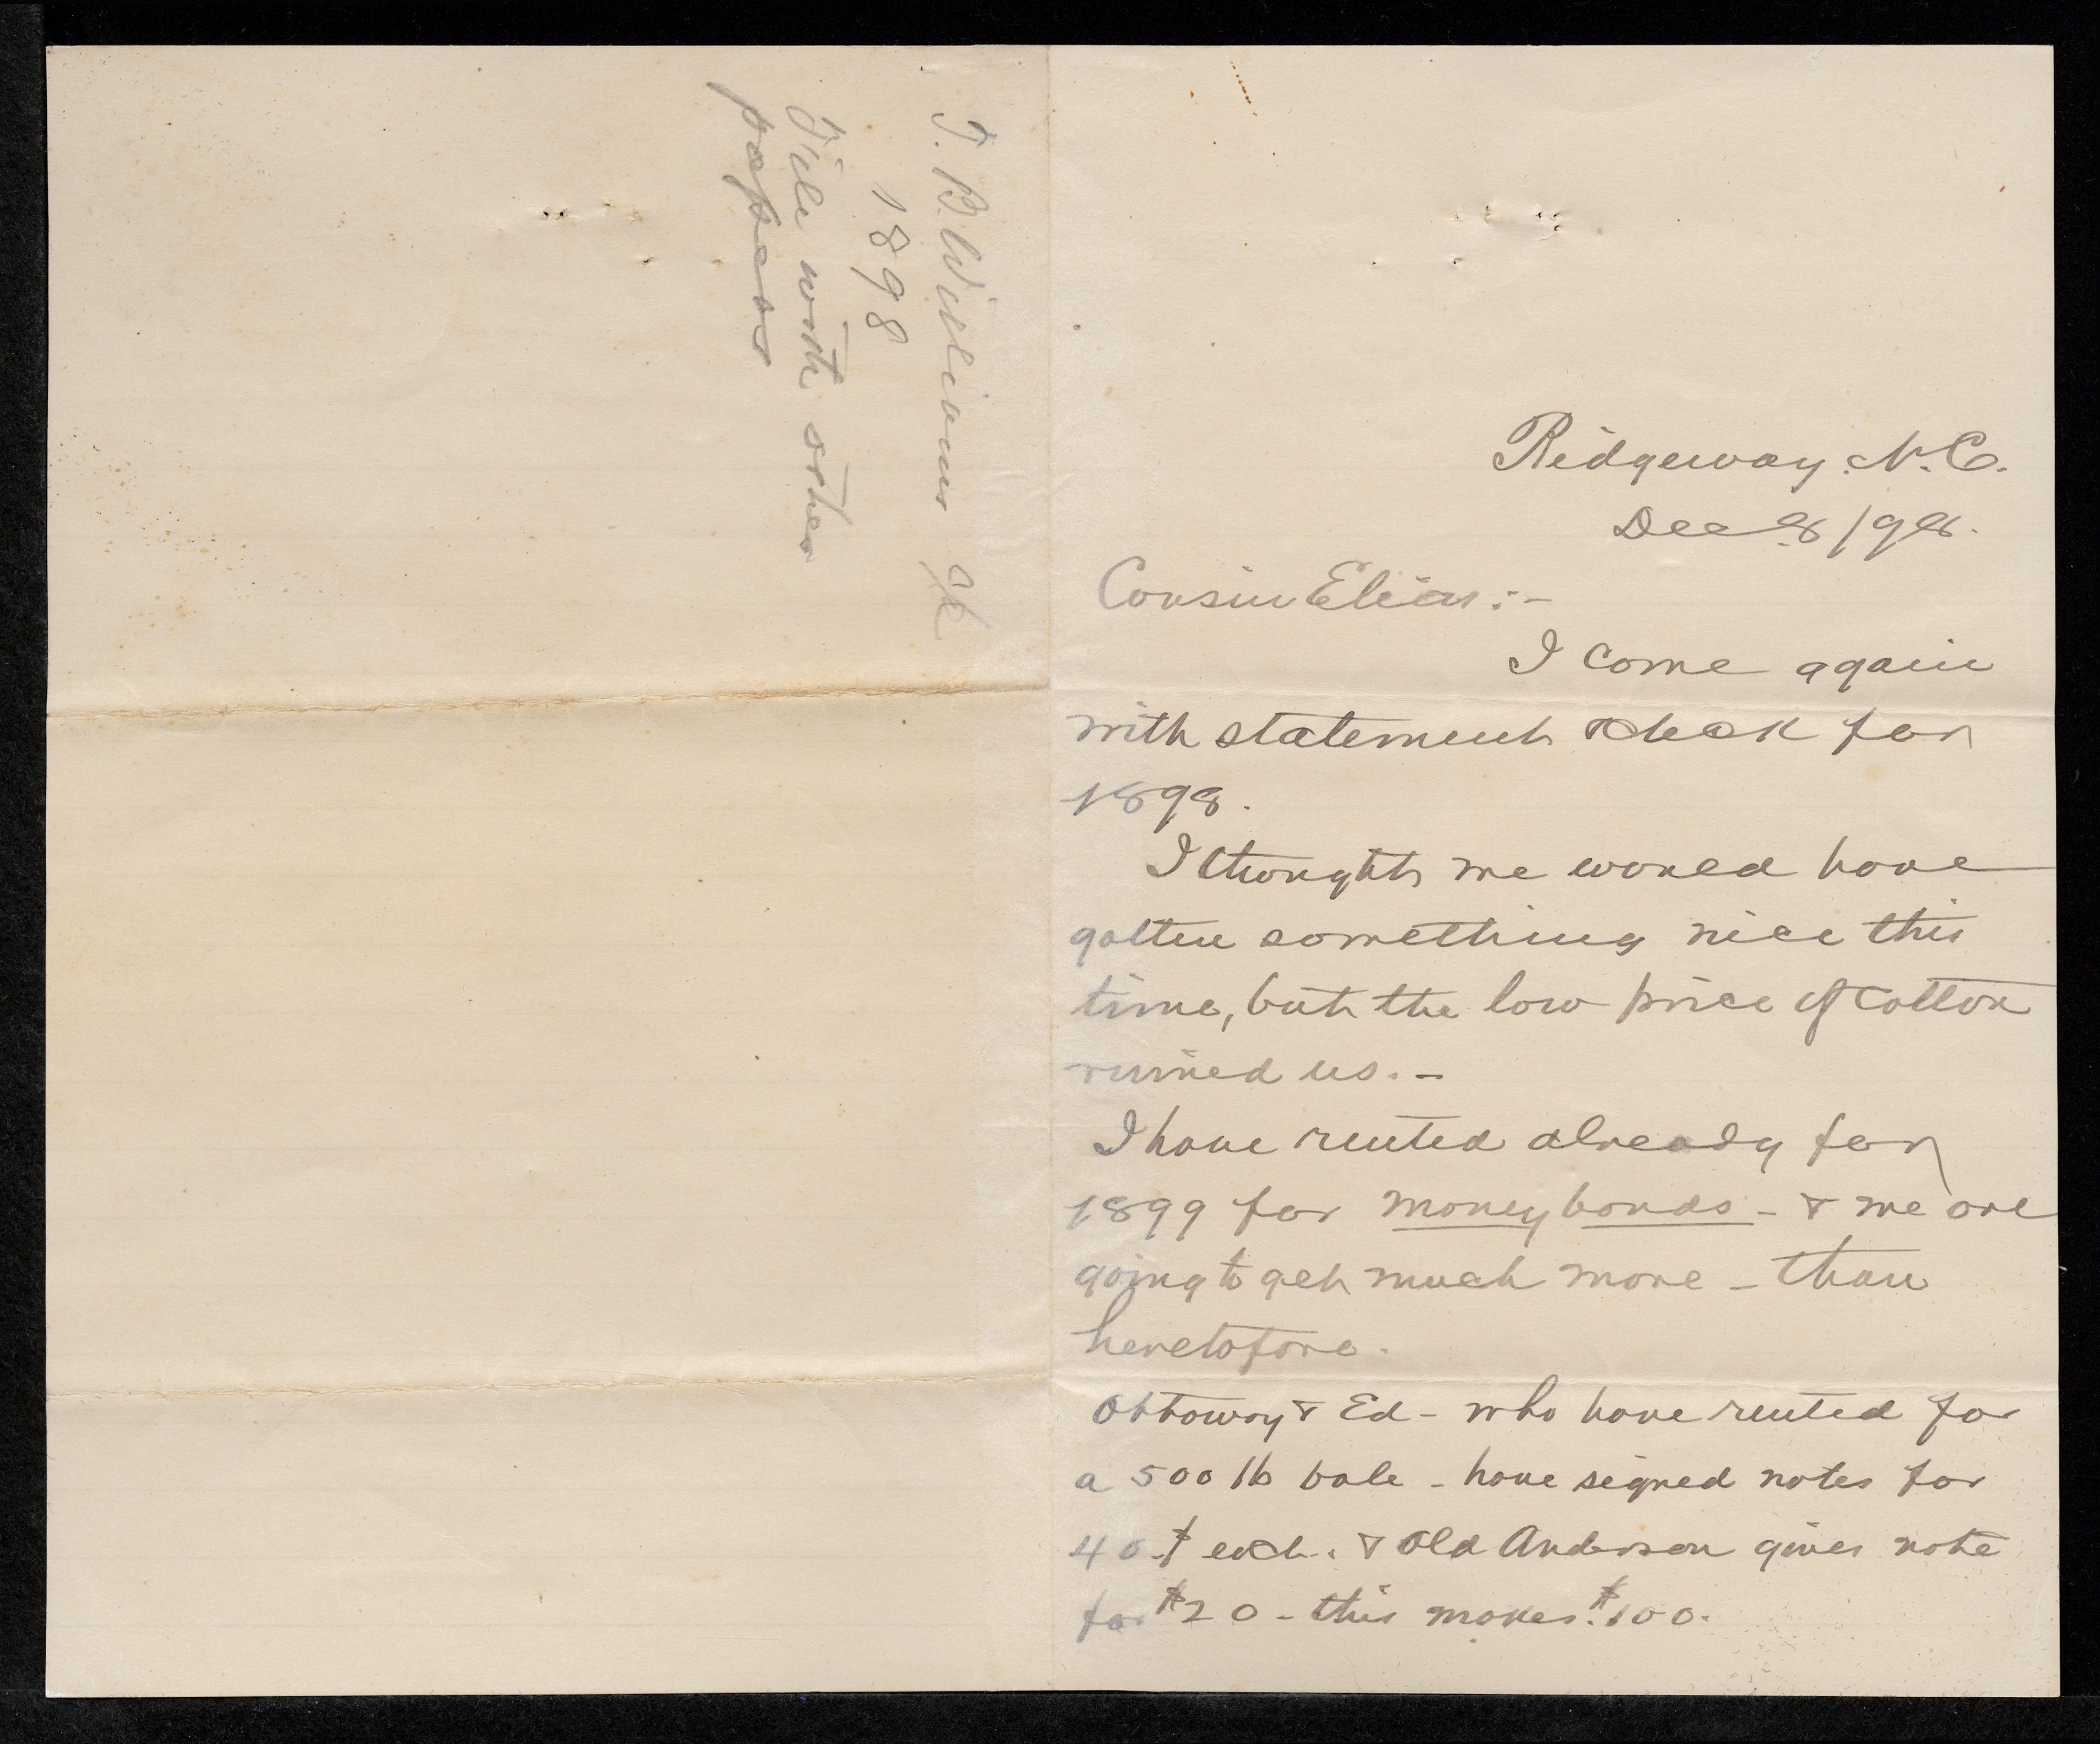 T. B. Williams
1898
File with other
papers
Ridgeway. N. C.
Dec 8/98.
Cousin Elias:-
I come again
with statement & check for
1898.
I thought we would have
gotten something nice this
time, but the low price of cotton
ruined us. -
I have rented already for
1899 for money bonds - & we are
going to get much more - than
heretofore.
Ottoway & Ed - who have rented for
a 500 lb bale - have signed notes for
40 $ each. & Old Anderson gives note
for $20 - this makes $100.